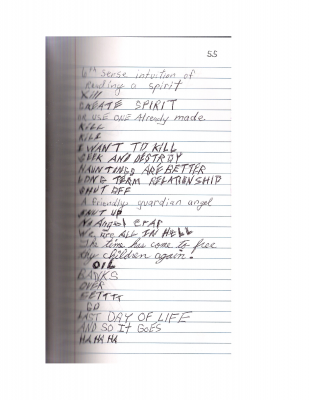 55
6th Sense intuition of
reading a spirit
Kill
CREATE SPIRIT
OR USE ONE Already made.
KILL
KILL
I WANT TO KILL
SEEK AND DESTROY
HAUNTINGS ARE BETTER
LONG TERM RELATIONSHIP
SHUT OFF
A friendly guardian angel
SHUT UP
No Angel crap
We are ALL IN HELL
The time has come to free
the children again.
OIL
BANKS
OVER
GO
LAST DAY OF LIFE
AND SO IT GOES
HA HA HA